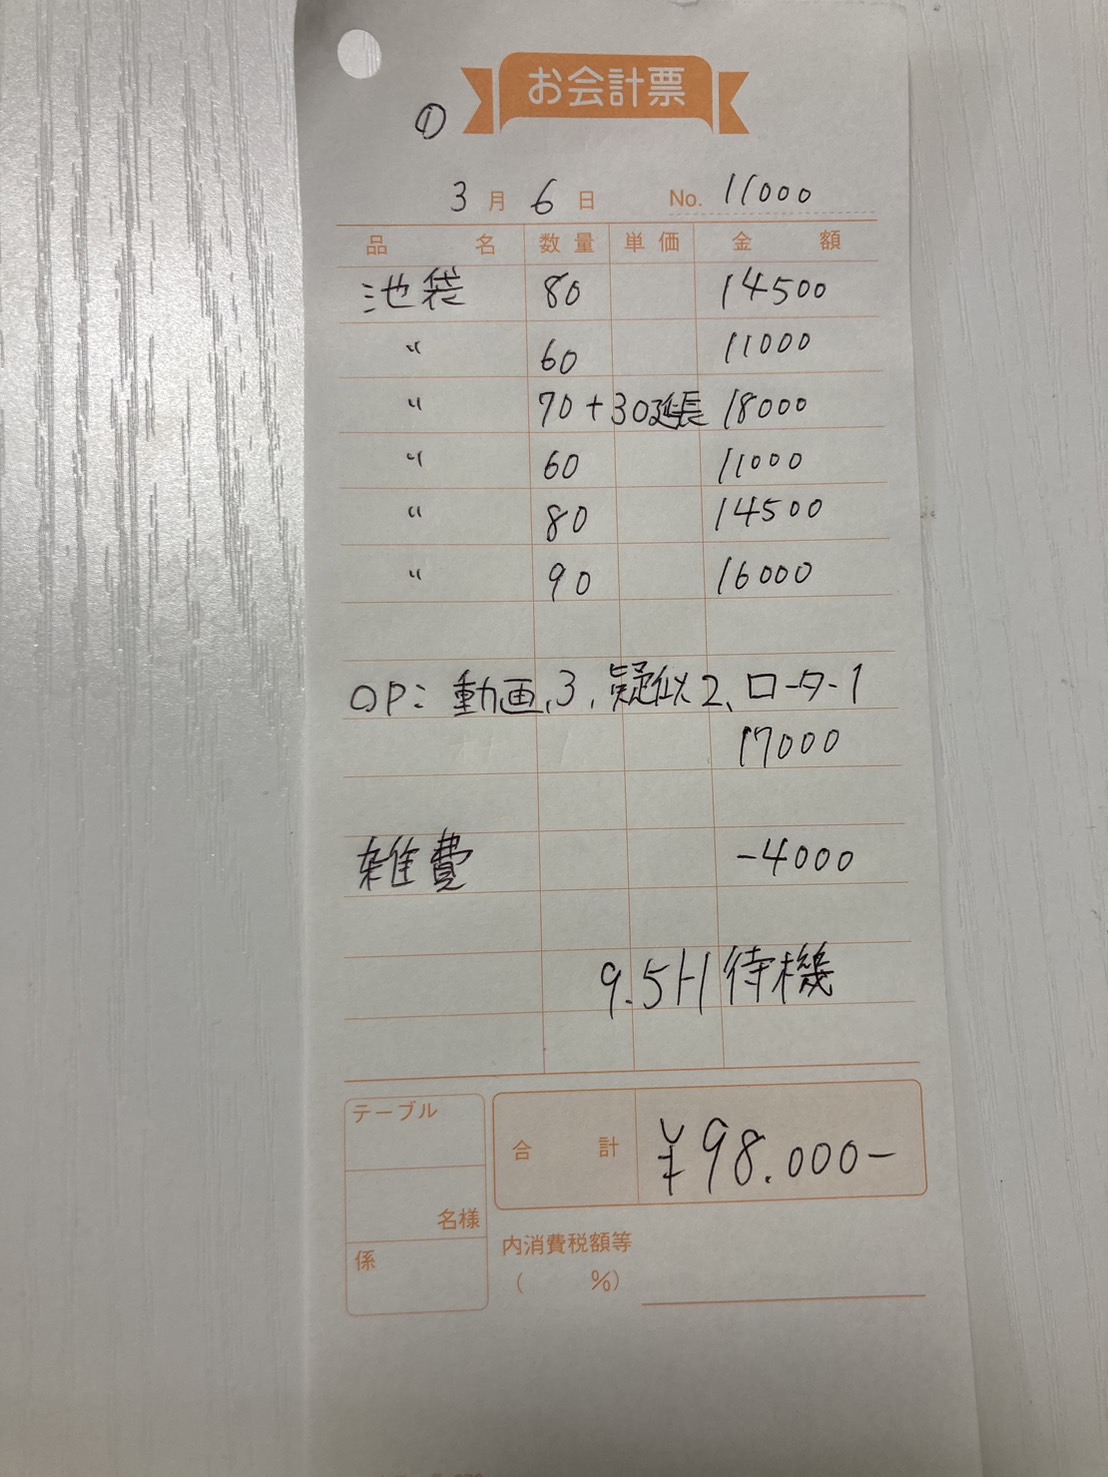 お会計票
①
3月6日 No. 11000
品名 数量 単価 金額
池袋 80 14500
〃 60 11000
〃 70+30延長 18000
〃 60 11000
〃 80 14500
〃 90 16000
OP: 動画、3、疑似2、ローター1
17000
雑費 -4000
9.5H待機
テーブル
名様
係
合計 ¥98.000-
内消費税額等
( %)